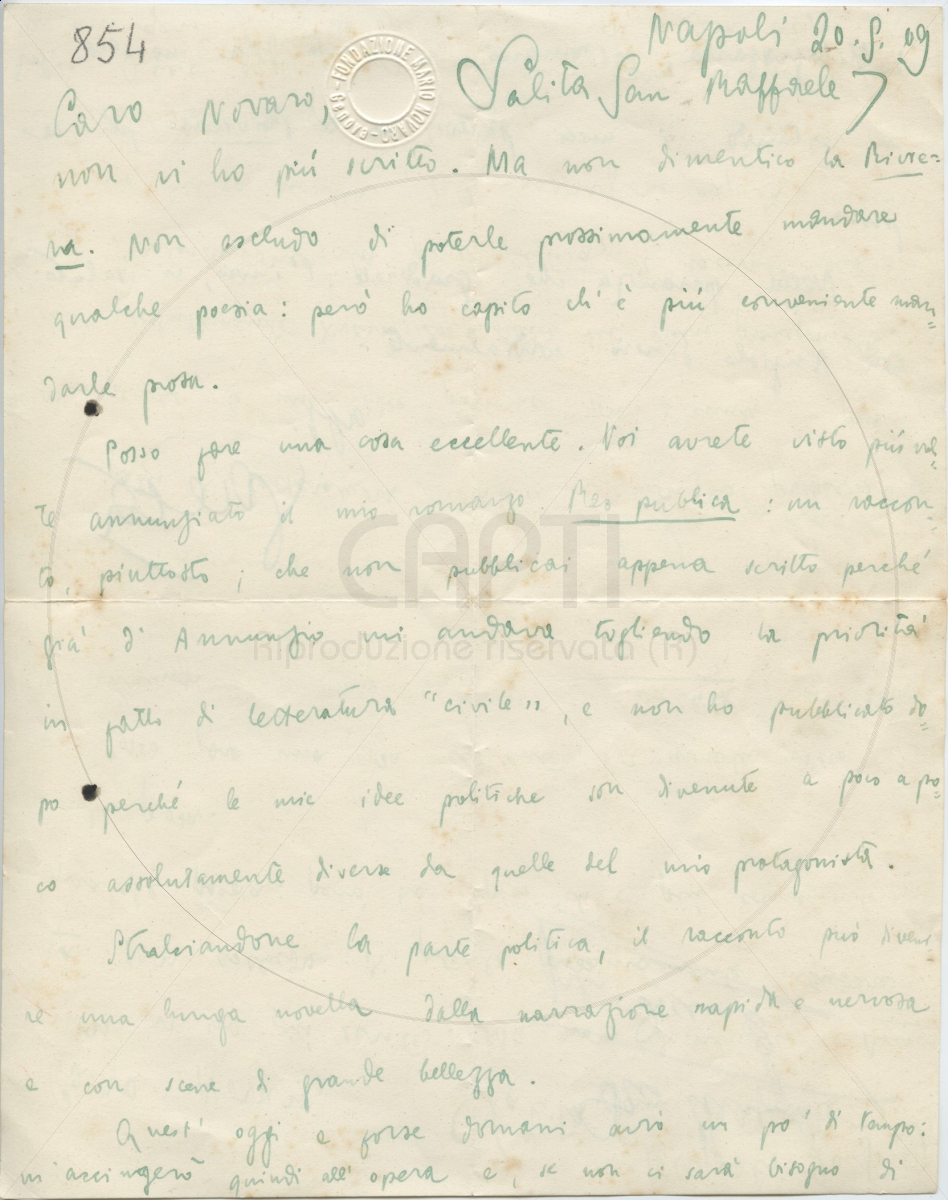 854
Napoli 20.8.09
FONDAZIONE MARIO NOVARO
Salita San Raffaele 7
Caro Novaro,
non vi ho più scritto. Ma non dimentico la Rivie=
ra. Non escludo di poterle prossimamente mandare
qualche poesia: però ho capito ch'è più conveniente man=
darle prosa.
Posso fare una cosa eccellente. Voi avrete visto più vol=
te annunziato il mio romanzo Res publica: un raccon=
to, piuttosto; che non pubblicai appena scritto perché
già d'Annunzio mi andava togliendo la priorità
in fatto di letteratura "civile", e non ho pubblicato do=
po perché le mie idee politiche son divenute a poco a po=
co assolutamente diverse da quelle del mio protagonista.
Stralciandone la parte politica, il racconto può diveni
re una lunga novella dalla narrazione rapida e nervosa
e con scene di grande bellezza.
Quest'oggi e forse domani avrò un po' di tempo:
m'accingerò quindi all'opera e, se non ci sarà bisogno di
CAPTI
Riproduzione riservata (R)